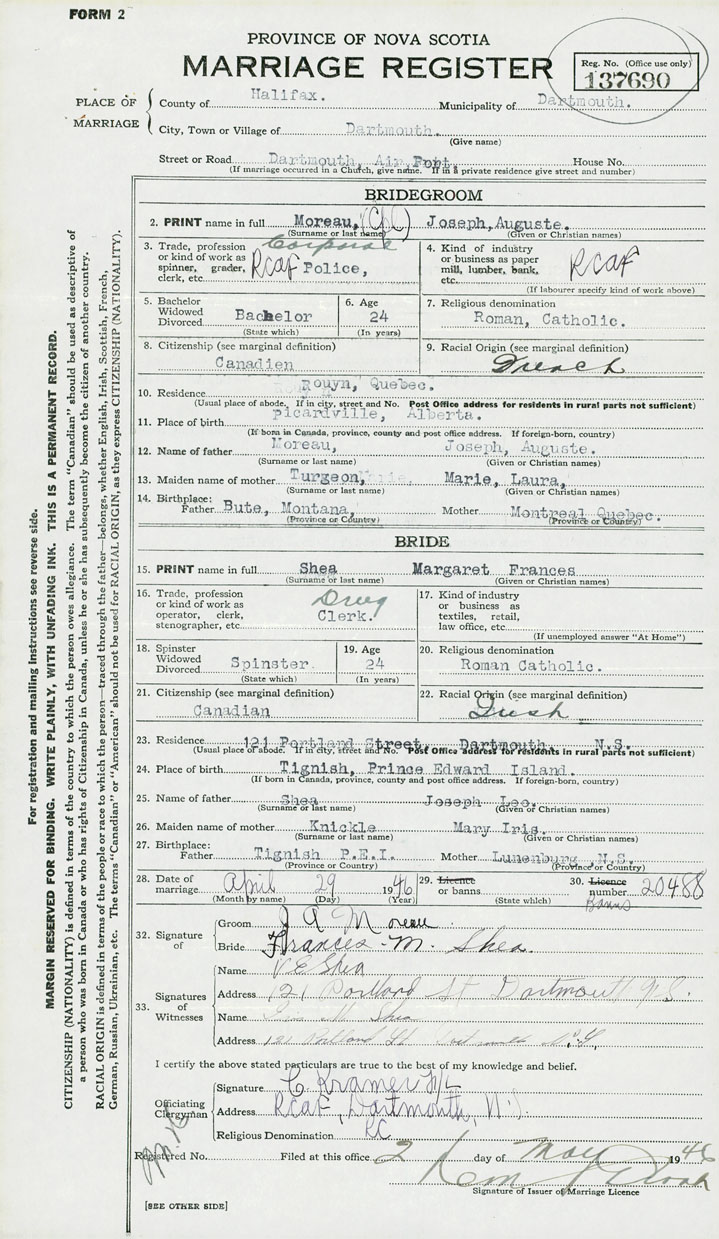 FORM 2
PROVINCE OF NOVA SCOTIA
MARRIAGE REGISTER
Reg. No. (Office use only)
137690
PLACE OF MARRIAGE
County of Halifax. Municipality of Dartmouth.
City, Town or Village of Dartmouth.
(Give name)
Street or Road Dartmouth, Air Port, House No.
(If marriage occurred in a Church, give name. If in a private residence give street and number)
BRIDEGROOM
2. PRINT name in full Moreau, (Cpl) Joseph, Auguste.
(Surname or last name) (Given or Christian names)
3. Trade, profession or kind of work as spinner, grader, clerk, etc. Corporal RCAF Police,
4. Kind of industry or business as paper mill, lumber, bank, etc. RCAF
(If labourer specify kind of work above)
5. Bachelor Widowed Divorced Bachelor
(State which)
6. Age 24
(In years)
7. Religious denomination
Roman, Catholic.
8. Citizenship (see marginal definition)
Canadien
9. Racial Origin (see marginal definition)
French
10. Residence Rouyn, Quebec.
(Usual place of abode. If in city, street and No. Post Office address for residents in rural parts not sufficient)
11. Place of birth Picardville, Alberta.
(If born in Canada, province, county and post office address. If foreign-born, country)
12. Name of father Moreau, Joseph, Auguste.
(Surname or last name) (Given or Christian names)
13. Maiden name of mother Turgeon, Marie, Laura,
(Surname or last name) (Given or Christian names)
14. Birthplace: Father Bute, Montana, Mother Montreal Quebec.
(Province or Country) (Province or Country)
BRIDE
15. PRINT name in full Shea Margaret Frances
(Surname or last name) (Given or Christian names)
16. Trade, profession or kind of work as operator, clerk, stenographer, etc. Drug Clerk.
17. Kind of industry or business as textiles, retail, law office, etc.
(If unemployed answer "At Home")
18. Spinster Widowed Divorced Spinster.
(State which)
19. Age 24
(In years)
20. Religious denomination
Roman Catholic.
21. Citizenship (see marginal definition)
Canadian
22. Racial Origin (see marginal definition)
Irish
23. Residence 121 Portland Street, Dartmouth, N.S.
(Usual place of abode. If in city, street and No. Post Office address for residents in rural parts not sufficient)
24. Place of birth Tignish, Prince Edward Island.
(If born in Canada, province, county and post office address. If foreign-born, country)
25. Name of father Shea Joseph Leo.
(Surname or last name) (Given or Christian names)
26. Maiden name of mother Knickle Mary Iris.
(Surname or last name) (Given or Christian names)
27. Birthplace: Father Tignish P.E.I. Mother Lunenburg, N.S.
(Province or Country) (Province or Country)
28. Date of marriage April 29 1946
(Month by name) (Day) (Year)
29. Licence or banns
(State which)
30. Licence number 20488
Banns
32. Signature of
Groom J A Moreau
Bride Frances M. Shea
33. Signatures of Witnesses
Name V E Shea
Address 121 Portland St Dartmouth N.S.
Name Shea
Address 121 Portland St Dartmouth N.S.
I certify the above stated particulars are true to the best of my knowledge and belief.
Officiating Clergyman
Signature C. Kramer F/L
Address RCAF, Dartmouth, N.S.
Religious Denomination RC
Registered No. Filed at this office 2 day of May 1946
Signature of Issuer of Marriage Licence
[SEE OTHER SIDE]
For registration and mailing instructions see reverse side.
MARGIN RESERVED FOR BINDING. WRITE PLAINLY, WITH UNFADING INK. THIS IS A PERMANENT RECORD.
CITIZENSHIP (NATIONALITY) is defined in terms of the country to which the person owes allegiance. The term "Canadian" should be used as descriptive of
a person who was born in Canada or who has rights of Citizenship in Canada, unless he or she has subsequently become the citizen of another country.
RACIAL ORIGIN is defined in terms of the people or race to which the person—traced through the father—belongs, whether English, Irish, Scottish, French,
German, Russian, Ukrainian, etc. The terms "Canadian" or "American" should not be used for RACIAL ORIGIN, as they express CITIZENSHIP (NATIONALITY).